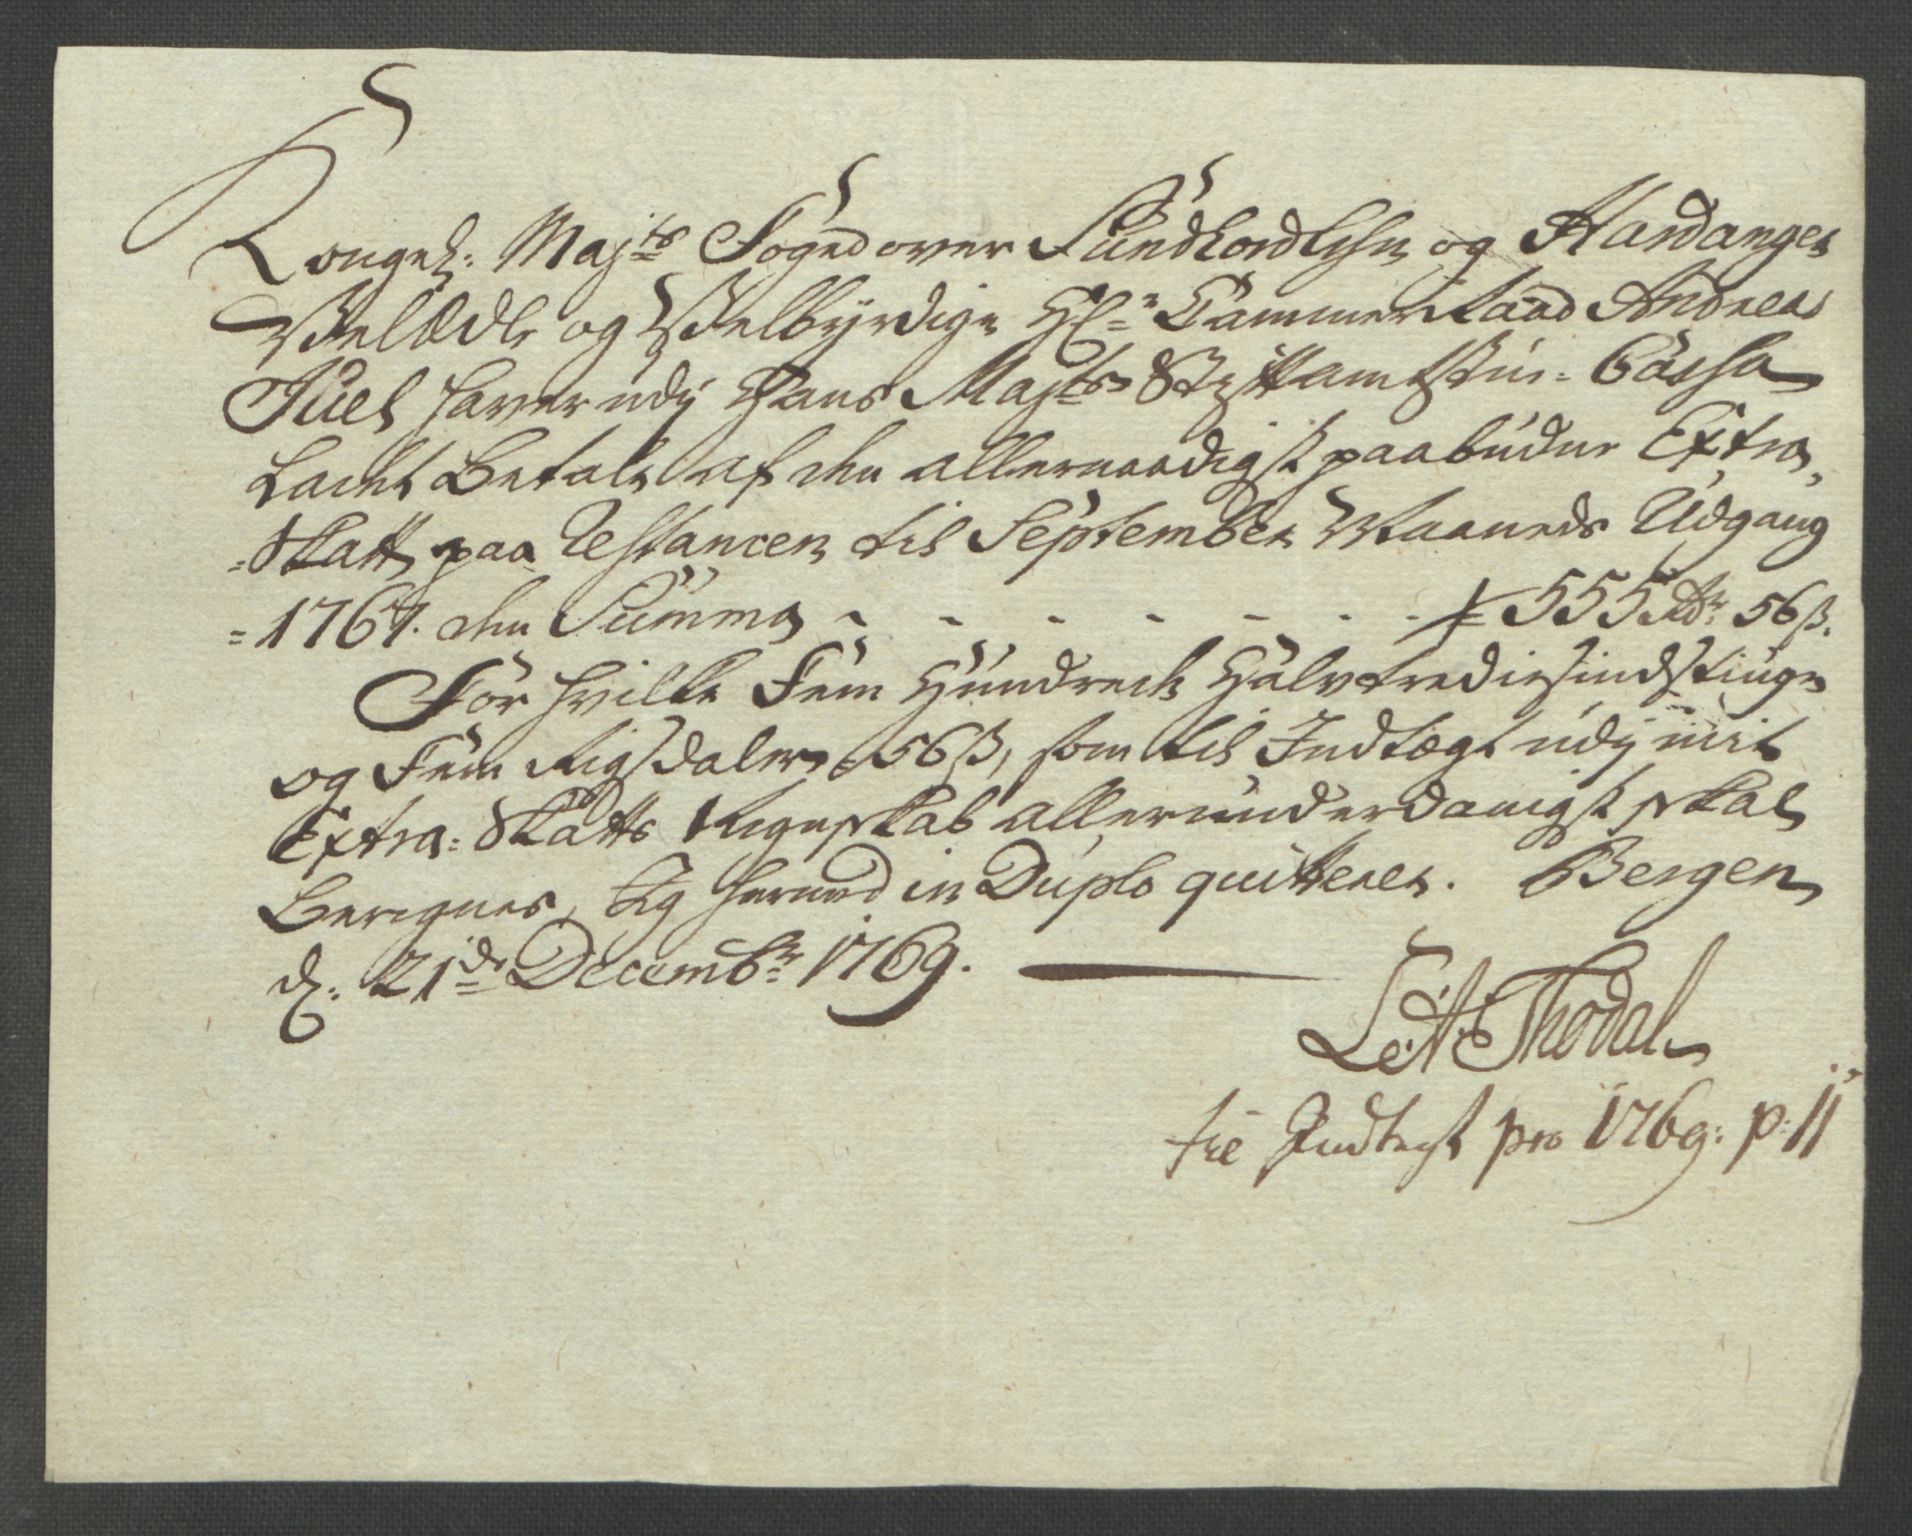 Kongel: Majts Foged over Sundhordlehn og Hardanger
Welædle og Welbyrdige Hr Cammer Raad Andreas
Juel haver udj Hans Majts Stiftamtstue-Cassa
Ladet Betale af den allernaadigst paabudne Extra-
-Skatt paa Restancen til September Maaneds Udgang
=1767. den Summa - - - - - - - - 555 Rdr 56 ß.
For hvilke Fem Hundrede Halvtrediesindstiuge
og Fem Rigsdaler 56 ß, som til Indtægt udj mit
Extra-Skatts Regnskab allerunderdanigst skal
Beregnes, Jeg hermed in Duplo quitterer. Bergen
d: 21de Decembr 1769.
L: A: Thodal
til Indtegt pro 1769: p: 11